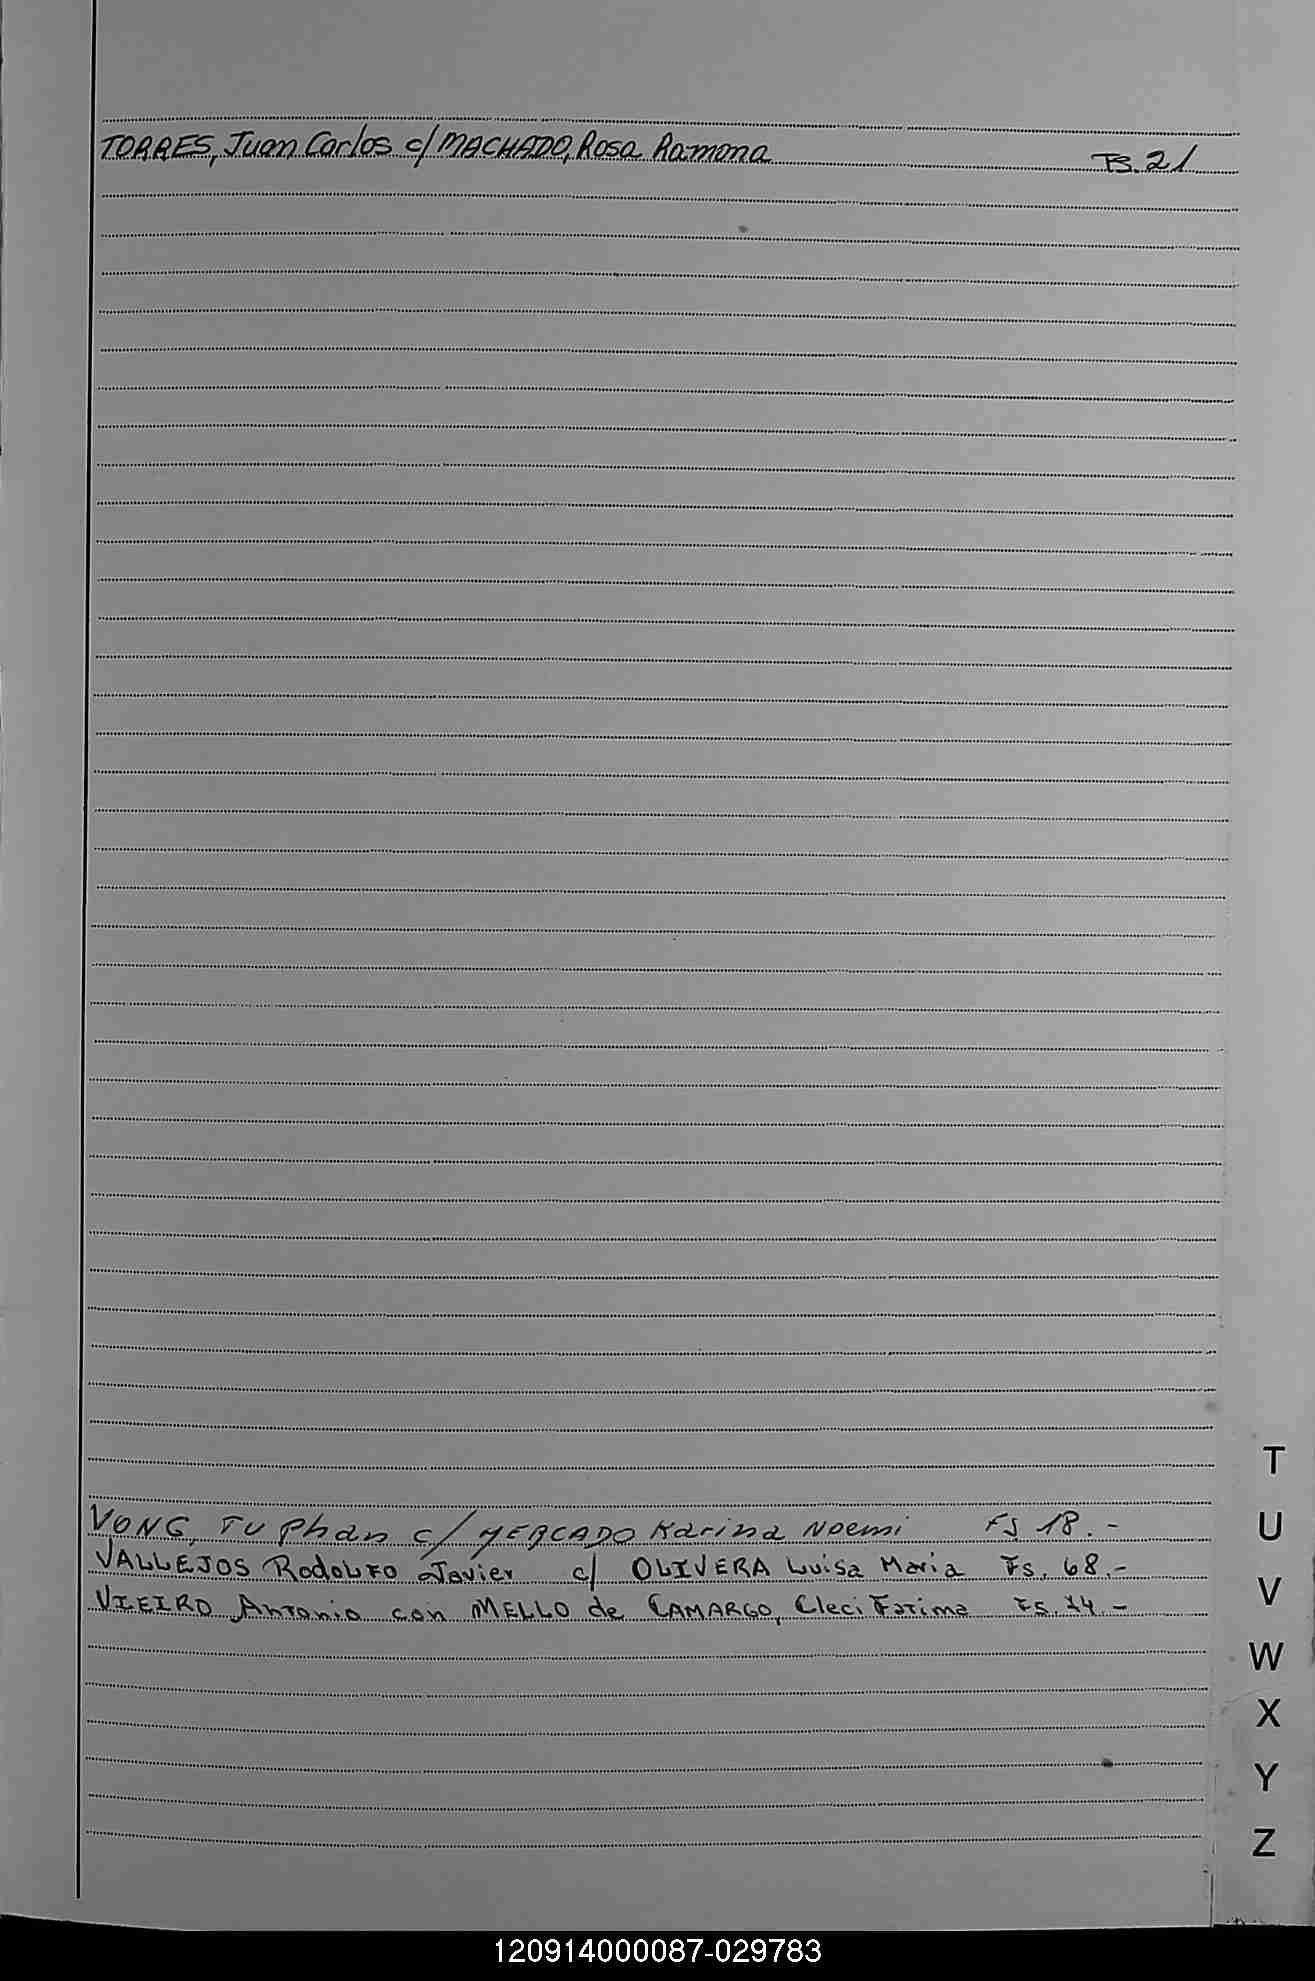 TORRES, Juan Carlos c/ MACHADO, Rosa Ramona Fs. 21
VONG, TU Phan c/ MERCADO Karina Noemi Fs 18.-
VALLEJOS Rodolfo Javier c/ OLIVERA Luisa Maria Fs. 68.-
VIEIRO Antonio con MELLO de CAMARGO, Cleci Fatima Fs. 74.-
T
U
V
W
X
Y
Z
120914000087-029783